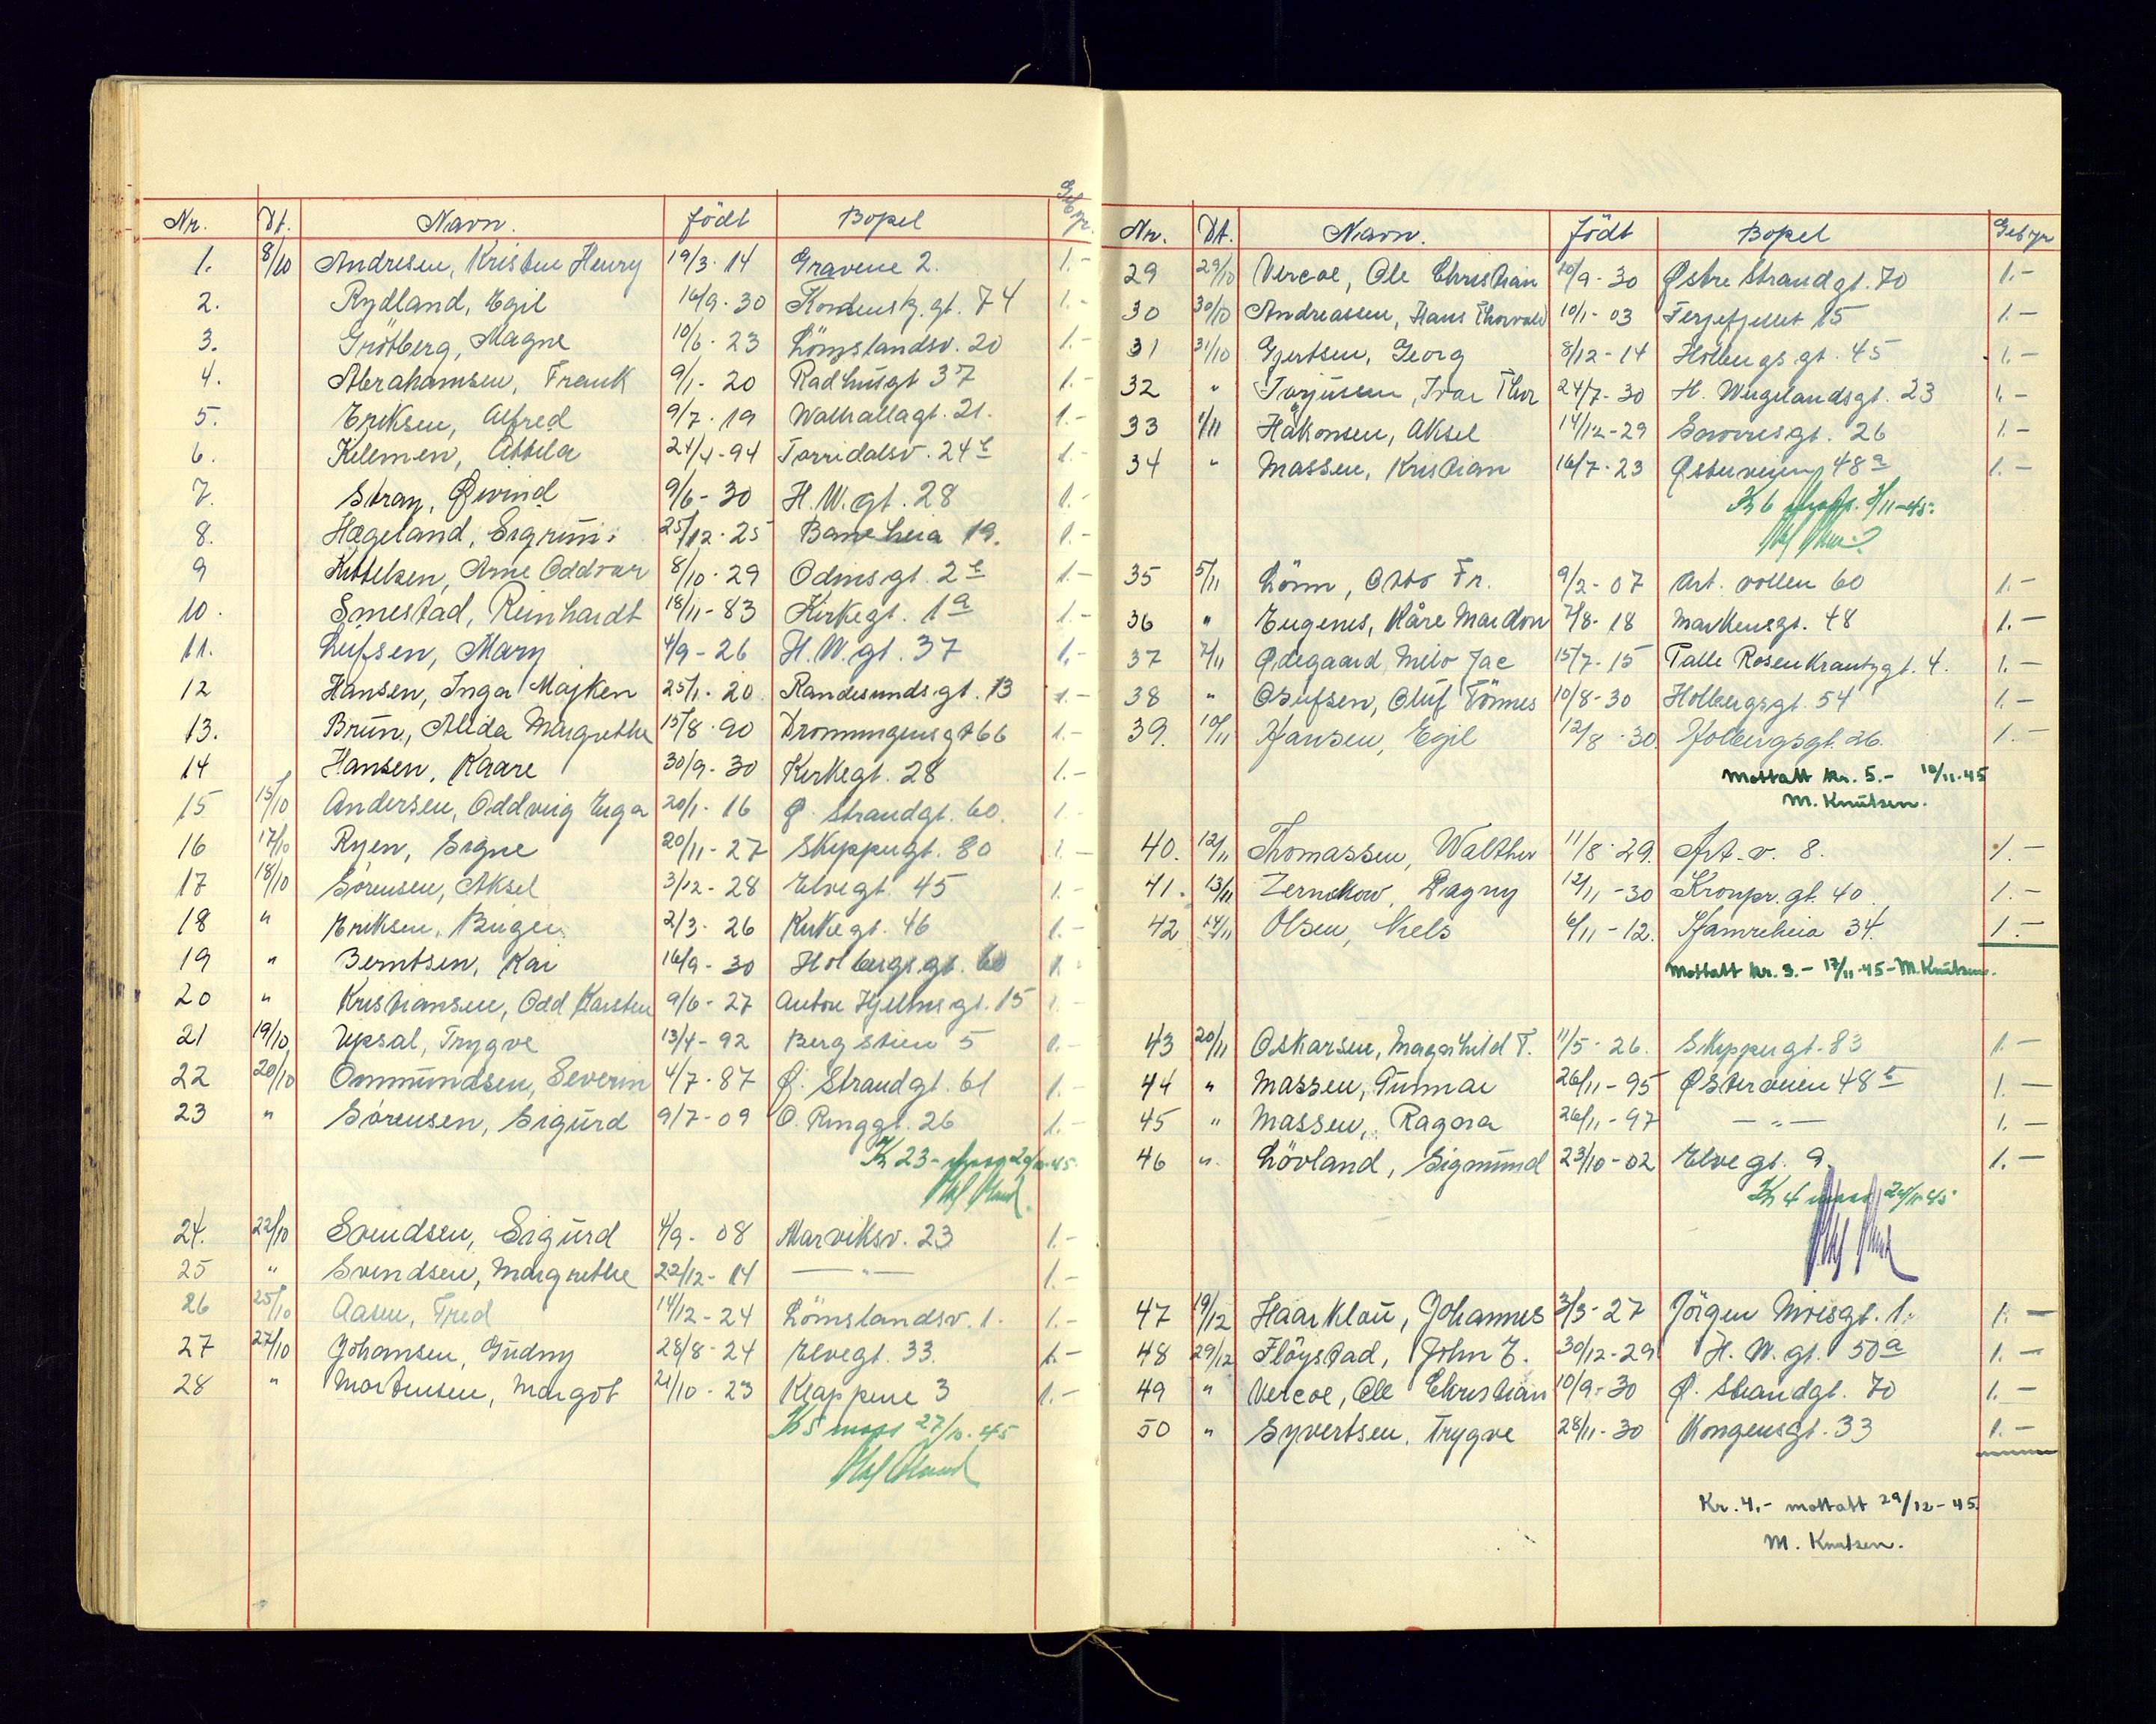 Nr. Dt. Navn. Födt Bopel Gebyr.
1. 8/10 Andresen, Kristen Henry 19/3-14 Gravene 2. 1.-
2. Rydland, Egil 16/9-30 Kordensk. gt. 74 1.-
3. Grötberg, Magne 10/6-23 Lömslandsv. 20 1.-
4. Abrahamsen, Frank 9/1-20 Radhusgt 37 1.-
5. Eriksen, Alfred 9/7-19 Walhallagt. 21. 1.-
6. Kelemen, Attila 24/4-94 Torridalsv. 24 1.-
7. Stray, Øivind 9/6-30 H.W.gt. 28 1.-
8. Hægeland, Sigrun 25/12-25 Baneheia 19. 1.-
9 Kittelsen, Arne Oddvar 8/10-29 Odinsgt. 2 1.-
10. Smestad, Reinhardt 18/11-83 Kirkegt. 1a 1.-
11. Leifsen, Mary 4/9-26 H.W.gt. 37 1.-
12 Hansen, Inga Majken 25/1-20 Randesundsgt. 13 1.-
13. Brun, Alida Margrethe 15/8-90 Dronningensgt 66 1.-
14 Hansen, Kaare 30/9-30 Kirkegt. 28 1.-
15 15/10 Andersen, Oddveig Inga 20/1-16 Ø. Strandgt. 60. 1.-
16 17/10 Ryen, Signe 20/11-27 Skippergt. 80 1.-
17 18/10 Sörensen, Aksel 3/12-28 Elvegt. 45 1.-
18 " Eriksen, Birger 2/3-26 Kirkegt. 46 1.-
19 " Berntsen, Kai 16/9-30 Holbergsgt. 60 1.-
20 " Kristiansen, Odd Karsten 9/6-27 Anton Hjelmsgt. 15 1.-
21 19/10 Upsal, Trygve 13/4-92 Bergstien 5 1.-
22 20/10 Ommundsen, Severin 4/7-87 Ø. Strandgt. 61 1.-
23 " Sörensen, Sigurd 9/7-09 O. Ringgt. 26 1.-
Kr 23.-
24. 22/10 Svendsen, Sigurd 4/9-08 Marviksv. 23 1.-
25 " Svendsen, Margrethe 22/12-14 — " — 1.-
26 25/10 Aasen, Fred 14/12-24 Lömslandsv. 1. 1.-
27 27/10 Johansen, Gudny 28/8-24 Elvegt. 33. 1.-
28 " Mortensen, Margot 21/10-23 Klappene 3 1.-
Kr 5 27/10-45
Nr. Dt. Navn. Födt Bopel Gebyr
29 29/10 Vercoe, Ole Christian 10/9-30 Østre Strandgt. 70 1.-
30 30/10 Andreassen, Hans Thorvald 10/1-03 Ferjefjellet 15 1.-
31 31/10 Gjertsen, Georg 8/12-14 Holbergsgt. 45 1.-
32 " Torjussen, Ivar Thor 24/7-30 H. Wergelandsgt. 23 1.-
33 1/11 Håkonsen, Aksel 14/12-29 Sverresgt. 26 1.-
34 " Massen, Kristian 16/7-23 Østerveien 48a 1.-
Kr 6
35 5/11 Lönn, Otto Fr. 9/2-07 Art. vollen 60 1.-
36 " Eugenes, Kåre Mardon 7/8-18 Markensgt. 48 1.-
37 7/11 Ødegaard, Milo Jac 15/7-15 Palle Rosenkrantzgt. 4. 1.-
38 " Osufsen, Oluf Tönnes 10/8-30 Holbergsgt. 54 1.-
39. 10/11 Hansen, Egil 12/8-30 Holbergsgt. 26. 1.-
Mottatt kr. 5.- 10/11-45
M. Knutsen.
40. 12/11 Thomassen, Walther 11/8-29. Art.v. 8. 1.-
41. 13/11 Zernchow, Dagny 12/11-30 Kronpr.gt. 40. 1.-
42 14/11 Olsen, Niels 6/11-12. Hamreheia 34. 1.-
Mottatt kr. 3.- 17/11-45 - M. Knutsen.
43 20/11 Oskarsen, Magnhild T. 11/5-26. Skippergt. 83 1.-
44 " Massen, Gunnar 26/11-95 Østerveien 48 1.-
45 " Massen, Ragna 26/11-97 — " — 1.-
46 " Lövland, Sigmund 23/10-02 Elvegt. 9. 1.-
Kr 4
47 19/12 Haarklau, Johannes 3/3-27 Jörgen Moesgt. 1. 1.-
48 29/12 Flöystad, John E. 30/12-29 H.W.gt. 50a 1.-
49 " Vercoe, Ole Christian 10/9-30 Ø. Strandgt. 70 1.-
50 " Syvertsen, Trygve 28/11-30 Kongensgt. 33 1.-
Kr. 4.- mottatt 29/12-45.
M. Knutsen.